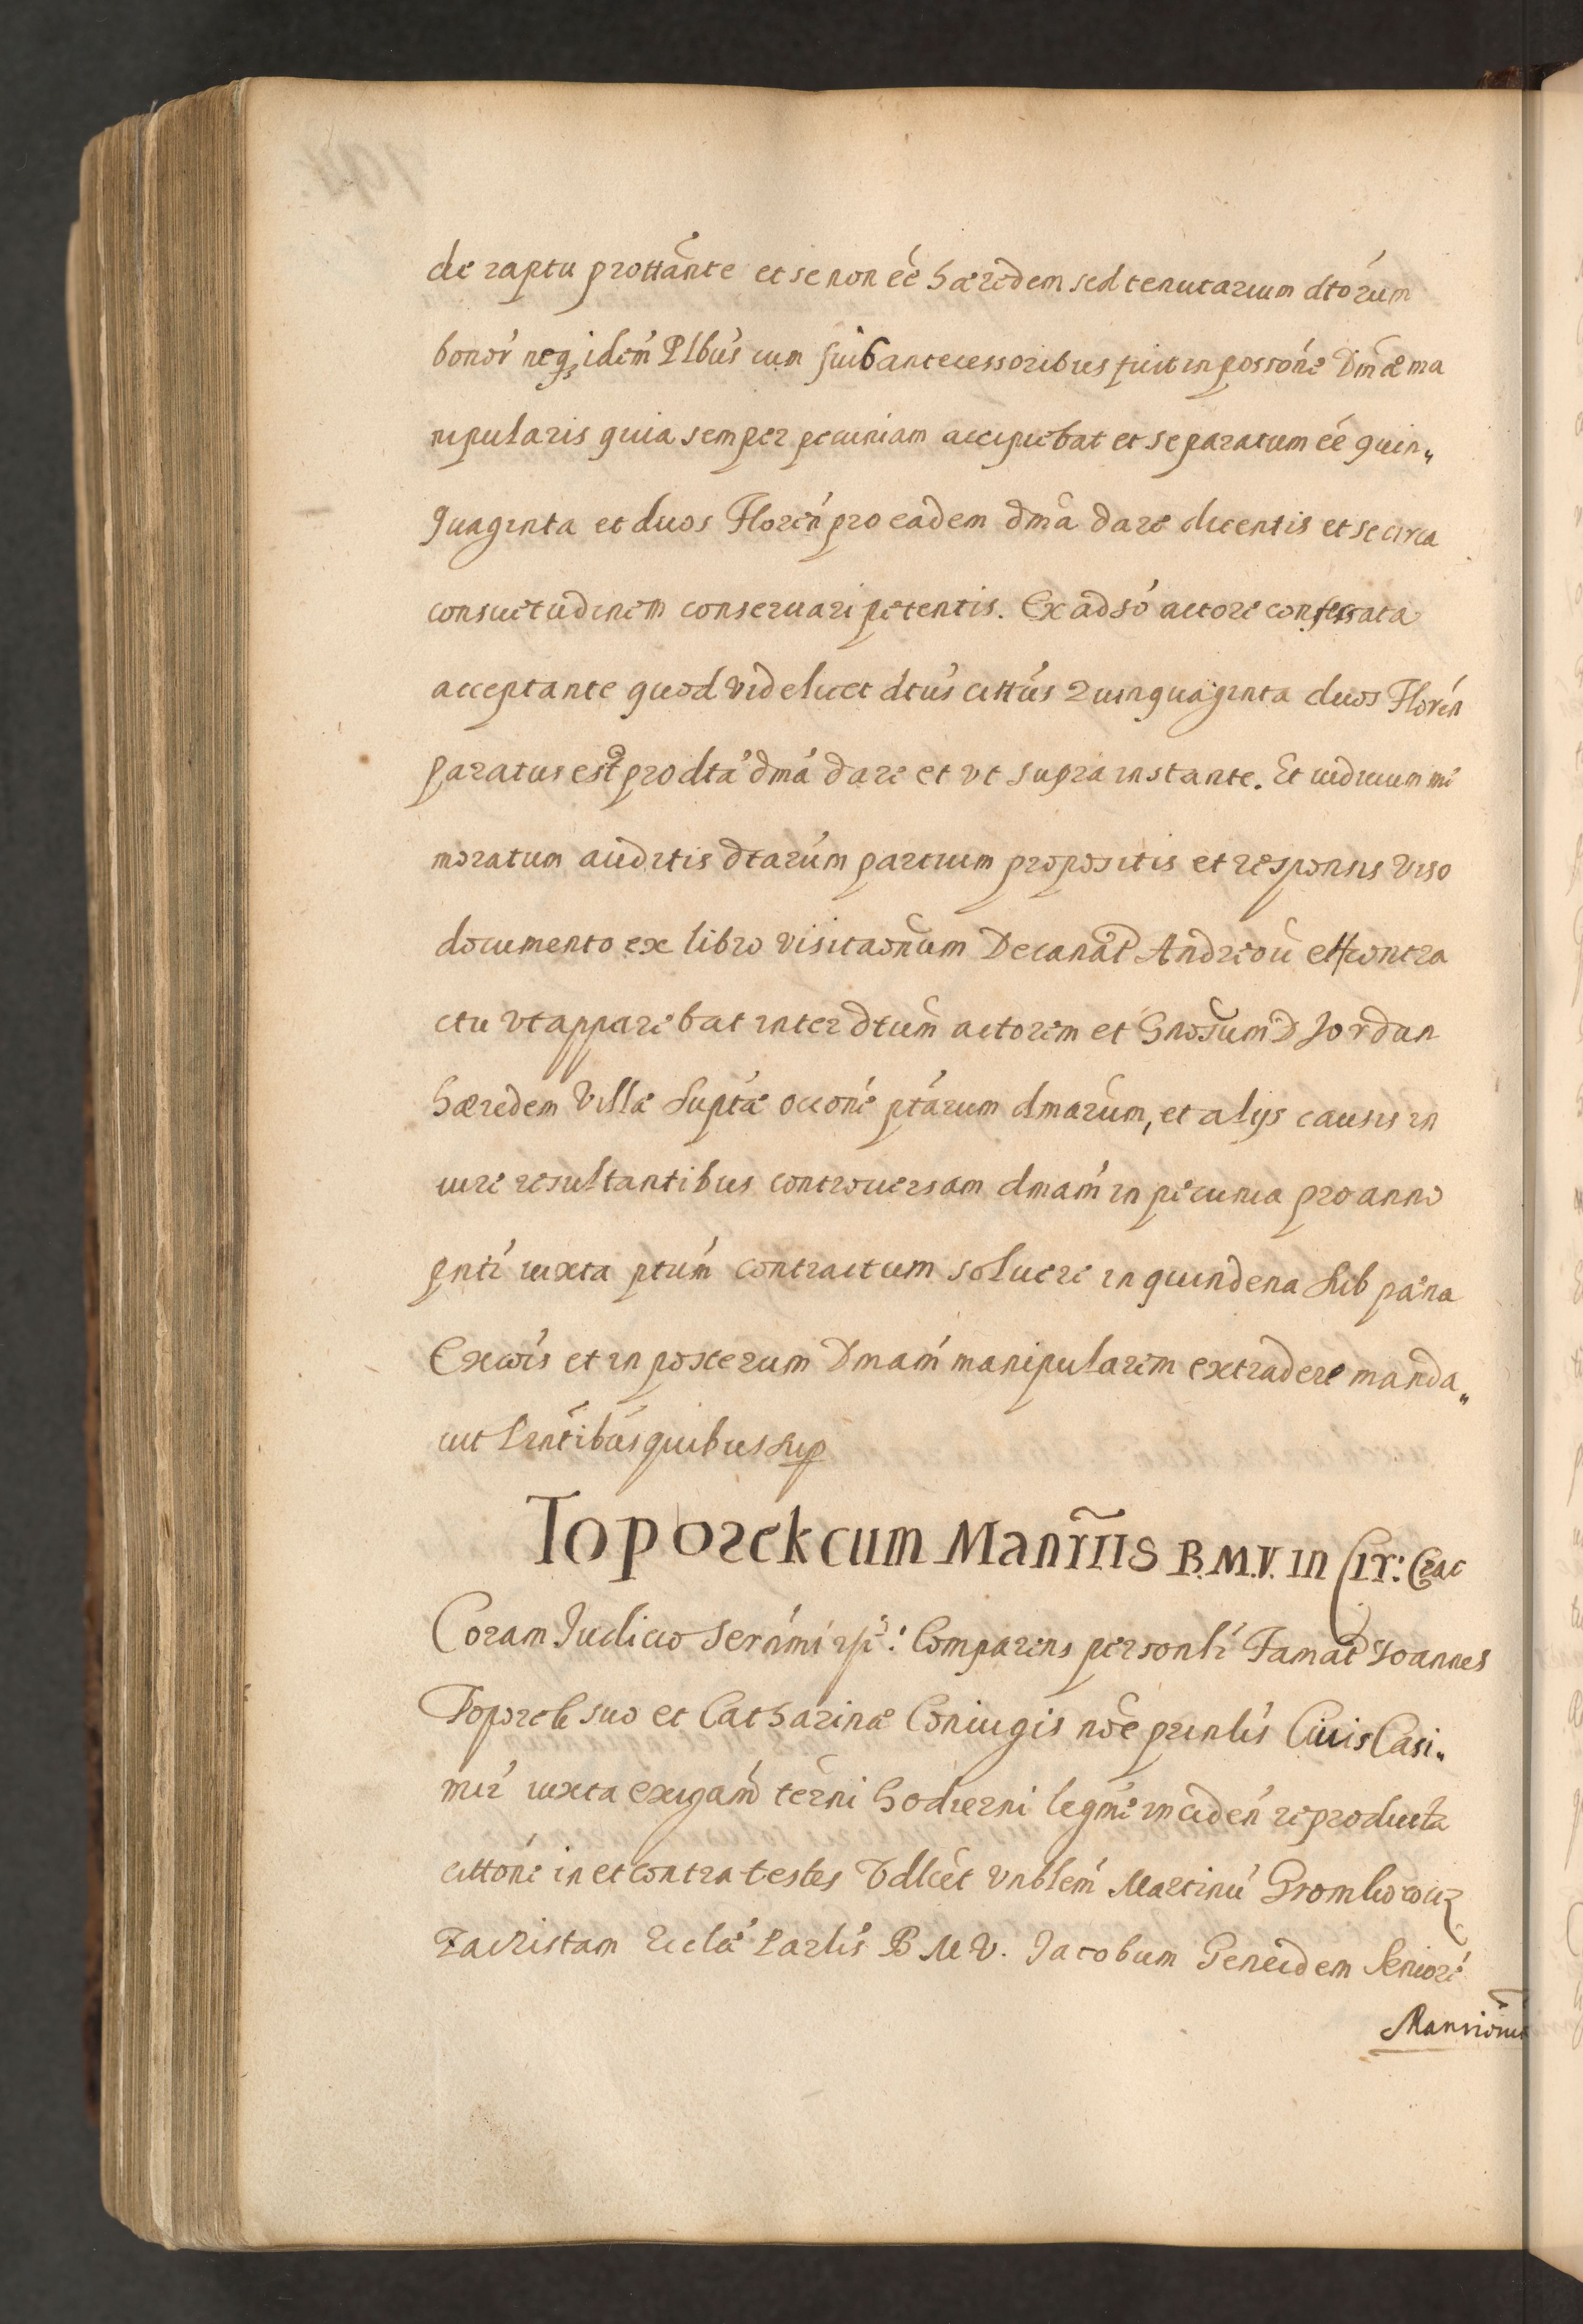 de raptu prottãnte et se non éé hæredem sed tenutarium dtórum
bonoŕ neq₃ idem̃ Plbús cum suis antecessoribus fuit in possoné Dmæ ma
nipularis quia semper pecuniam accipiebat et se paratum éé quin„
quaginta et duos Florén pro eadem dmã dare dicentis et se circa
consuetudinem conseruari petentis. Ex adsó actore confessata
acceptante quod videlicet dtús cittús Quinquaginta duos Florén
paratus est pro dtá dmá dare et vt supra instante. Et iudicium me
moratum auditis dtarúm partium propositis et responsis viso
documento ex libro visitaõnum Decanat Andreoũ et contra
ctu vt apparebat inter dtum̃ actorem et Gnosum D Jordan
hæredem Villæ Suptæ occoné ptárum dmarúm, et alijs causis in
iure resultantibus controuersam dmam̃ in pecunia pro anno
pnti iuxta ptúm contractum soluere in quindena sub pæna
Excóis et in posterum Dmam̃ manipularem extradere manda„
uit Pntibús quibus sup
Toporek cum Manr̃iis B.M.V. in Cir: Crac
Coram Judicio Sernmi rp: Comparens personlr Famat Joannes
Toporek suo et Catharinæ Coniugis nõe prinlis Ciuis Casi„
mir iuxta exigam̃ térni hodierni legmé incidén reproducta
cittoné in et contra testes Vdlcét Vnblem̃ Martinú Gromkowicz
Zacristam Ecclæ Parlis B M V. Jacobum Geneidem Seniore
Mansionú